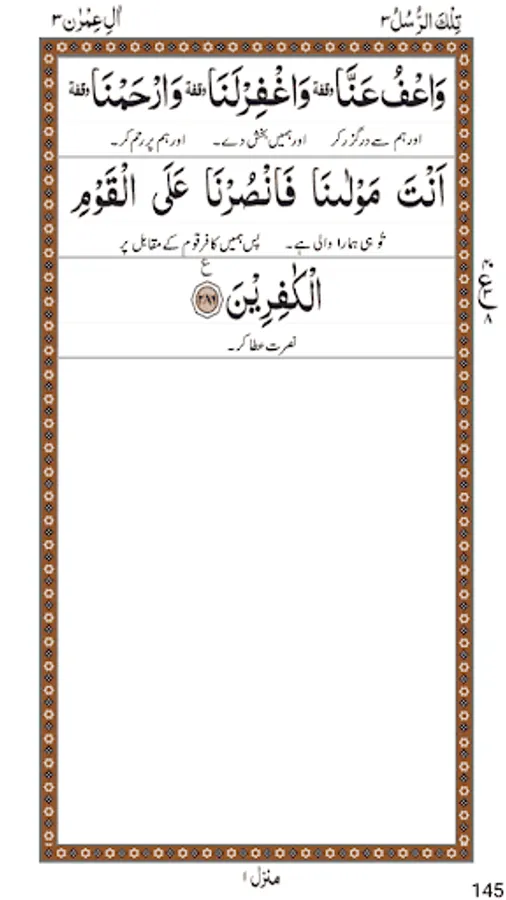 تِلْكَ الرُّسُلُ ٣ اٰلِ عِمْرٰن ٣
وَاعْفُ عَنَّا وقفة وَاغْفِرْلَنَا وقفة وَارْحَمْنَا وقفة
اور ہم سے درگزر کر اور ہمیں بخش دے۔ اور ہم پر رحم کر۔
اَنْتَ مَوْلٰىنَا فَانْصُرْنَا عَلَى الْقَوْمِ
تُو ہی ہمارا والی ہے۔ پس ہمیں کافر قوم کے مقابل پر
الْكٰفِرِيْنَ ع ٢٨٧
۴۰
ع
۸
نصرت عطا کر۔
منزل ١
145